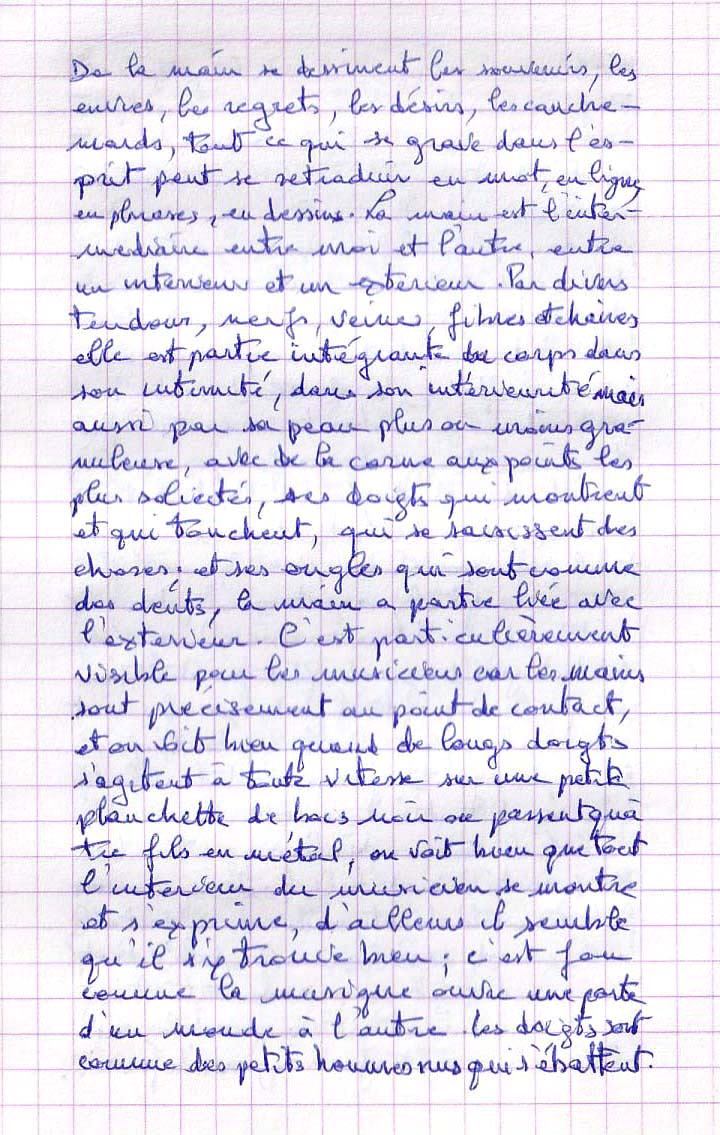 De la main se dessinent les souvenirs, les
envies, les regrets, les désirs, les cauche-
mards, tout ce qui se grave dans l'es-
prit peut se retraduir en mot, en ligne,
en phrases, en dessins. La main est l'inter-
mediaire entre moi et l'autre, entre
un interieur et un exterieur. Par divers
tendons, nerfs, veines, fibres et chaires
elle est partie intégrante du corps dans
son intimité, dans son intérieurité mais
aussi par sa peau plus ou moins gra-
nuleuse, avec de la corne aux points les
plus soliectés, ses doigts qui montrent
et qui touchent, qui se saisissent des
choses ; et ses ongles qui sont comme
des dents, la main a partie liée avec
l'exterieur. C'est particulièrement
visible pour les musiciens car les mains
sont précisement au point de contact,
et on voit bien quand de longs doigts
s'agitent à toute vitesse sur une petite
planchette de bois noir ou passent qua
tre fils en métal, on voit bien que tout
l'interieur du musicien se montre
et s'exprime, d'ailleurs il semble
qu'il s'y trouve bien ; c'est fou
comme la musique ouvre une porte
d'un monde à l'autre les doigts sont
comme des petits hommes nus qui s'ébattent.